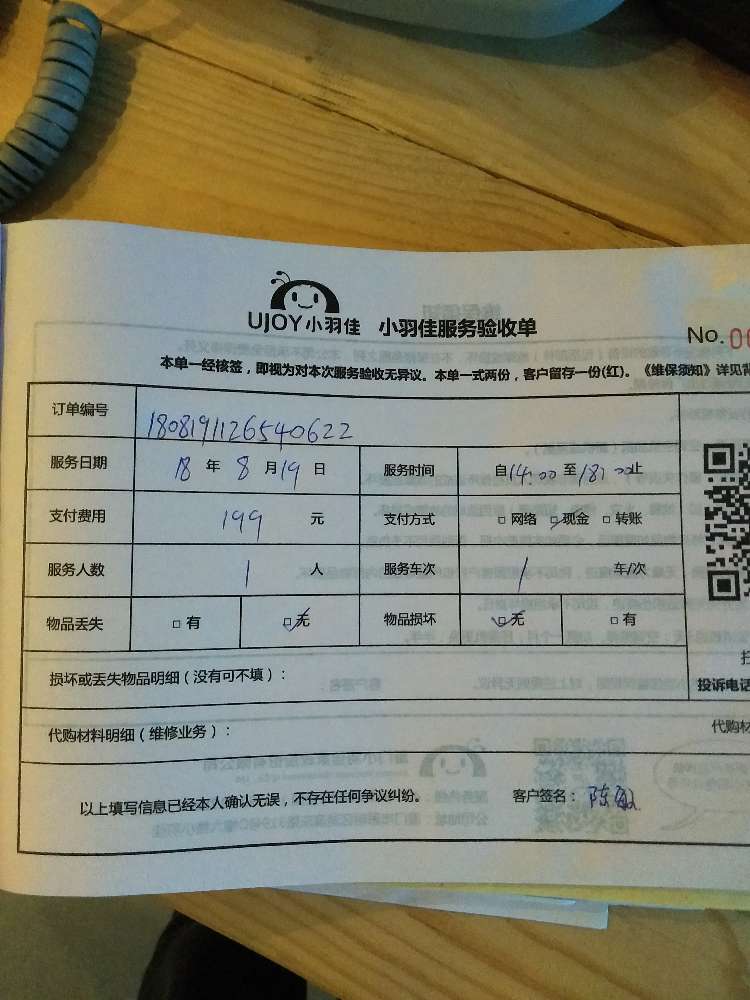 UJOY小羽佳 小羽佳服务验收单
No. 00
本单一经核签，即视为对本次服务验收无异议。本单一式两份，客户留存一份(红)。《维保须知》详见背
订单编号 180819112654062​2
服务日期 18 年 8 月 19 日 服务时间 自14:00 至18:00止
支付费用 199 元 支付方式 □ 网络 □ 现金 □ 转账
服务人数 1 人 服务车次 1 车/次
物品丢失 □ 有 □ 无 物品损坏 □ 无 □ 有
损坏或丢失物品明细（没有可不填）：
投诉电话
代购材料明细（维修业务）：
代购材
以上填写信息已经本人确认无误，不存在任何争议纠纷。 客户签名：陈敏